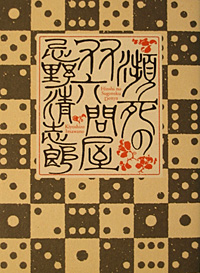 瀕死の
双六問屋
Hinshi no
Sugoroku
Donya
忌野清志郎
Kiyoshiro
Imawano